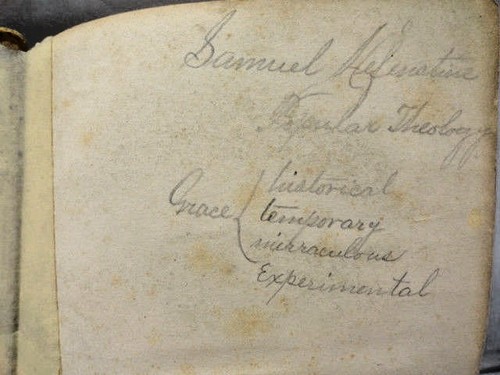 Samuel Helenstine
Popular Theology
historical
Grace { temporary
mirraculous
Experimental